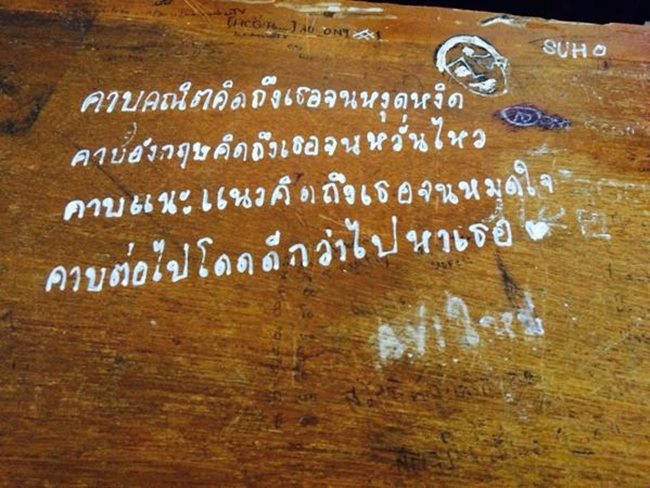 SUHO
คาบคณิตคิดถึงเธอจนหงุดหงิด
คาบอังกฤษคิดถึงเธอจนหวั่นไหว
คาบแนะแนวคิดถึงเธอจนหมดใจ
คาบต่อไปโดดดีกว่าไปหาเธอ